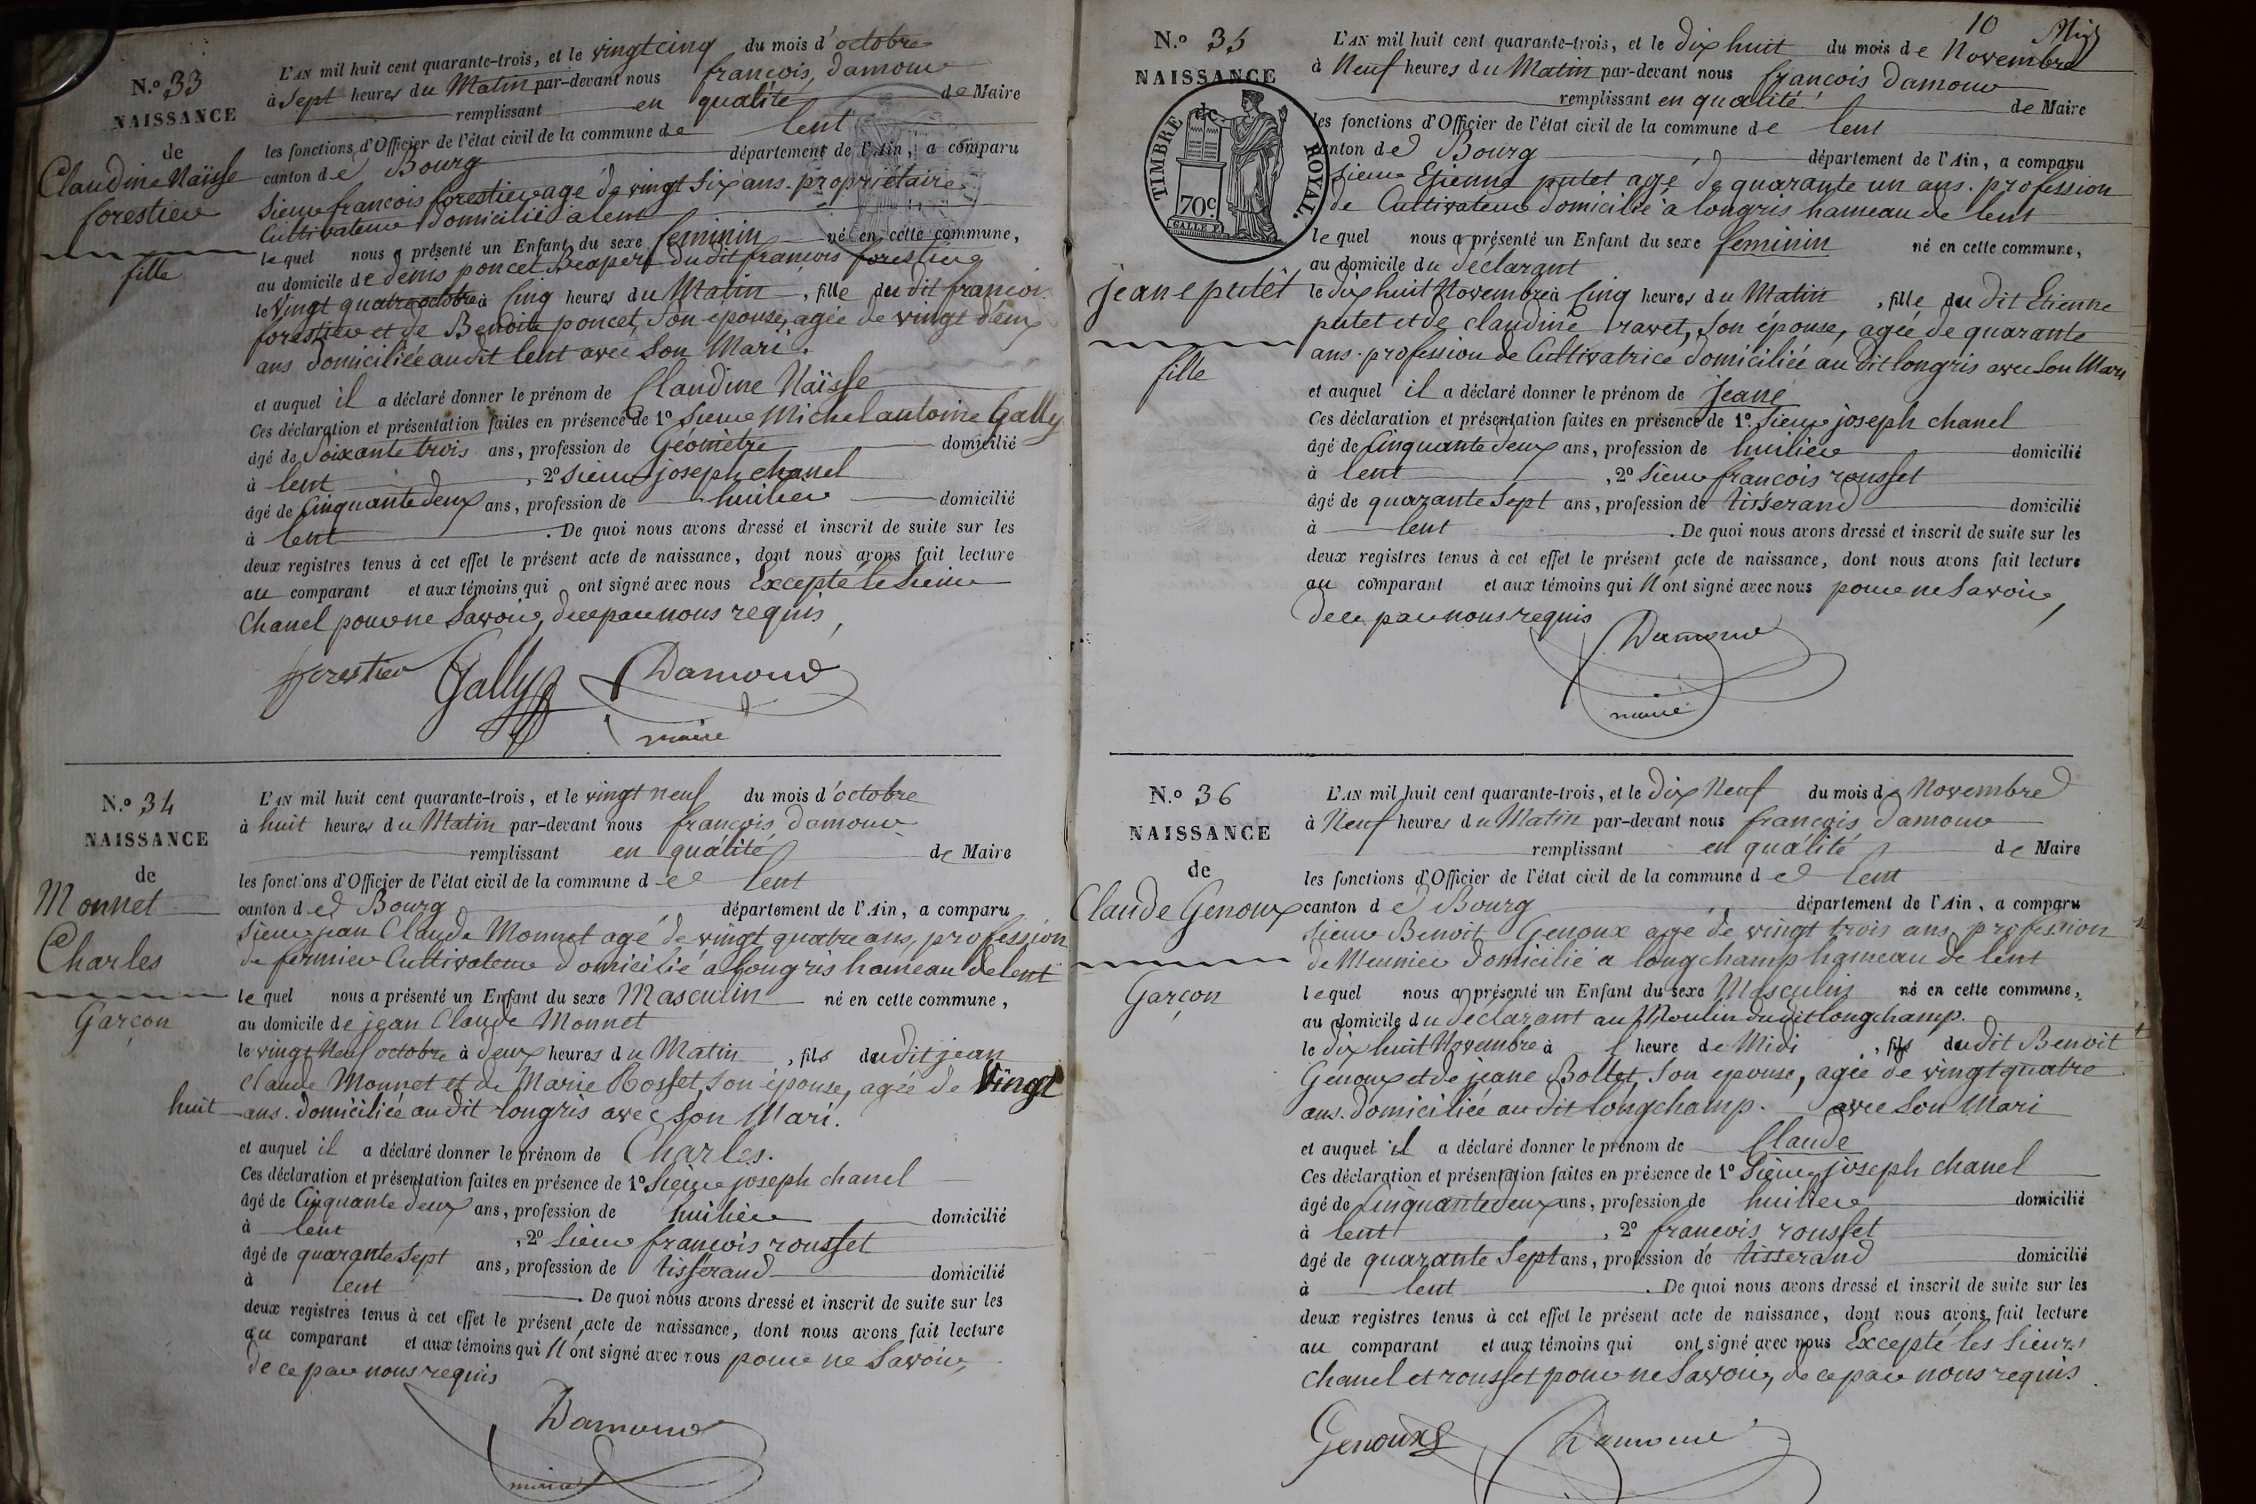 N.o 33
NAISSANCE
de
Claudine Naïsse
forestier
fille
L'AN mil huit cent quarante-trois, et le vingt cinq du mois d'octobre
à sept heures du Matin par-devant nous françois damour
remplissant en qualité de Maire
les fonctions d'Officier de l'état civil de la commune de lent
canton de Bourg département de l'Ain, a comparu
Sieur françois forestier agé de vingt six ans. propriétaire
Cultivateur domicilié a lent
lequel nous a présenté un Enfant du sexe feminin né en cette commune,
au domicile de denis poncet Beaupere du dit françois forestier
le Vingt quatre octobre à Cinq heures du Matin, fille du dit françois
forestier et de Benoite poncet, Son épouse, agée de vingt deux
ans domiciliée au dit lent avec Son Mari.
et auquel il a déclaré donner le prénom de Claudine Naïsse
Ces déclaration et présentation faites en présence de 1o Sieur Michel antoine Gally
âgé de Soixante trois ans, profession de Géometre domicilié
à lent, 2o Sieur joseph chanel
âgé de Cinquante deux ans, profession de huilier domicilié
à lent. De quoi nous avons dressé et inscrit de suite sur les
deux registres tenus à cet effet le présent acte de naissance, dont nous avons fait lecture
au comparant et aux témoins qui ont signé avec nous Excepté le Sieur
Chanel pour ne Savoir, de ce par nous requis,
forestier Gally Damour
maire
N.o 34
NAISSANCE
de
Monnet
Charles
Garçon
L'AN mil huit cent quarante-trois, et le vingt neuf du mois d'octobre
à huit heures du Matin par-devant nous françois damour
remplissant en qualité de Maire
les fonctions d'Officier de l'état civil de la commune de lent
canton de Bourg département de l'Ain, a comparu
Sieur jean Claude Monnet agé de vingt quatre ans, profession
de fermier Cultivateur domicilié a longris hameau de lent
lequel nous a présenté un Enfant du sexe Masculin né en cette commune,
au domicile de jean Claude Monnet
le vingt Neuf octobre à deux heures du Matin, fils du dit jean
Claude Monnet et de Marie Rosset, Son épouse, agée de Vingt
huit ans. domiciliée au dit longris avec Son Mari.
et auquel il a déclaré donner le prénom de Charles.
Ces déclaration et présentation faites en présence de 1o Sieur joseph chanel
âgé de Cinquante deux ans, profession de huilier domicilié
à lent, 2o Sieur françois rousset
âgé de quarante Sept ans, profession de tisserand domicilié
à lent. De quoi nous avons dressé et inscrit de suite sur les
deux registres tenus à cet effet le présent acte de naissance, dont nous avons fait lecture
au comparant et aux témoins qui N'ont signé avec nous pour ne Savoir,
de ce par nous requis
Damour
maire
10
N.o 35
NAISSANCE
de
TIMBRE ROYAL.
70c
jeane putet
fille
L'AN mil huit cent quarante-trois, et le dix huit du mois de Novembre
à Neuf heures du Matin par-devant nous françois damour
remplissant en qualité de Maire
les fonctions d'Officier de l'état civil de la commune de lent
canton de Bourg département de l'Ain, a comparu
Sieur Etienne putet agé de quarante un ans. profession
de Cultivateur domicilié a longris hameau de lent
lequel nous a présenté un Enfant du sexe feminin né en cette commune,
au domicile du declarant
le dix huit Novembre à Cinq heures du Matin, fille du dit Etienne
putet et de claudine ravet, Son épouse, agée de quarante
ans. profession de Cultivatrice domiciliée au dit longris avec Son Mari
et auquel il a déclaré donner le prénom de jeane
Ces déclaration et présentation faites en présence de 1o. Sieur joseph chanel
âgé de Cinquante deux ans, profession de huilier domicilié
à lent, 2o Sieur françois rousset
âgé de quarante Sept ans, profession de tisserand domicilié
à lent. De quoi nous avons dressé et inscrit de suite sur les
deux registres tenus à cet effet le présent acte de naissance, dont nous avons fait lecture
au comparant et aux témoins qui N'ont signé avec nous pour ne Savoir,
de ce par nous requis
Damour
maire
N.o 36
NAISSANCE
de
Claude Genoux
Garçon
L'AN mil huit cent quarante-trois, et le dix Neuf du mois de Novembre
à Neuf heures du Matin par-devant nous françois damour
remplissant en qualité de Maire
les fonctions d'Officier de l'état civil de la commune de lent
canton de Bourg département de l'Ain, a comparu
Sieur Benoit Genoux agé de vingt trois ans, profession
de Meunier domicilié a longchamp hameau de lent
lequel nous a présenté un Enfant du sexe Masculin né en cette commune,
au domicile du déclarant au Moulin du dit longchamp.
le dix huit Novembre à l heure de Midi, fils du dit Benoit
Genoux et de jeane Bollet, Son épouse, agée de vingt quatre
ans. domiciliée au dit longchamp. avec Son Mari
et auquel il a déclaré donner le prénom de Claude
Ces déclaration et présentation faites en présence de 1o Sieur joseph chanel
âgé de Cinquante deux ans, profession de huilier domicilié
à lent, 2o françois rousset
âgé de quarante Sept ans, profession de tisserand domicilié
à lent. De quoi nous avons dressé et inscrit de suite sur les
deux registres tenus à cet effet le présent acte de naissance, dont nous avons fait lecture
au comparant et aux témoins qui ont signé avec nous Excepté les Sieurs
Chanel et rousset pour ne Savoir, de ce par nous requis.
Genoux Damour